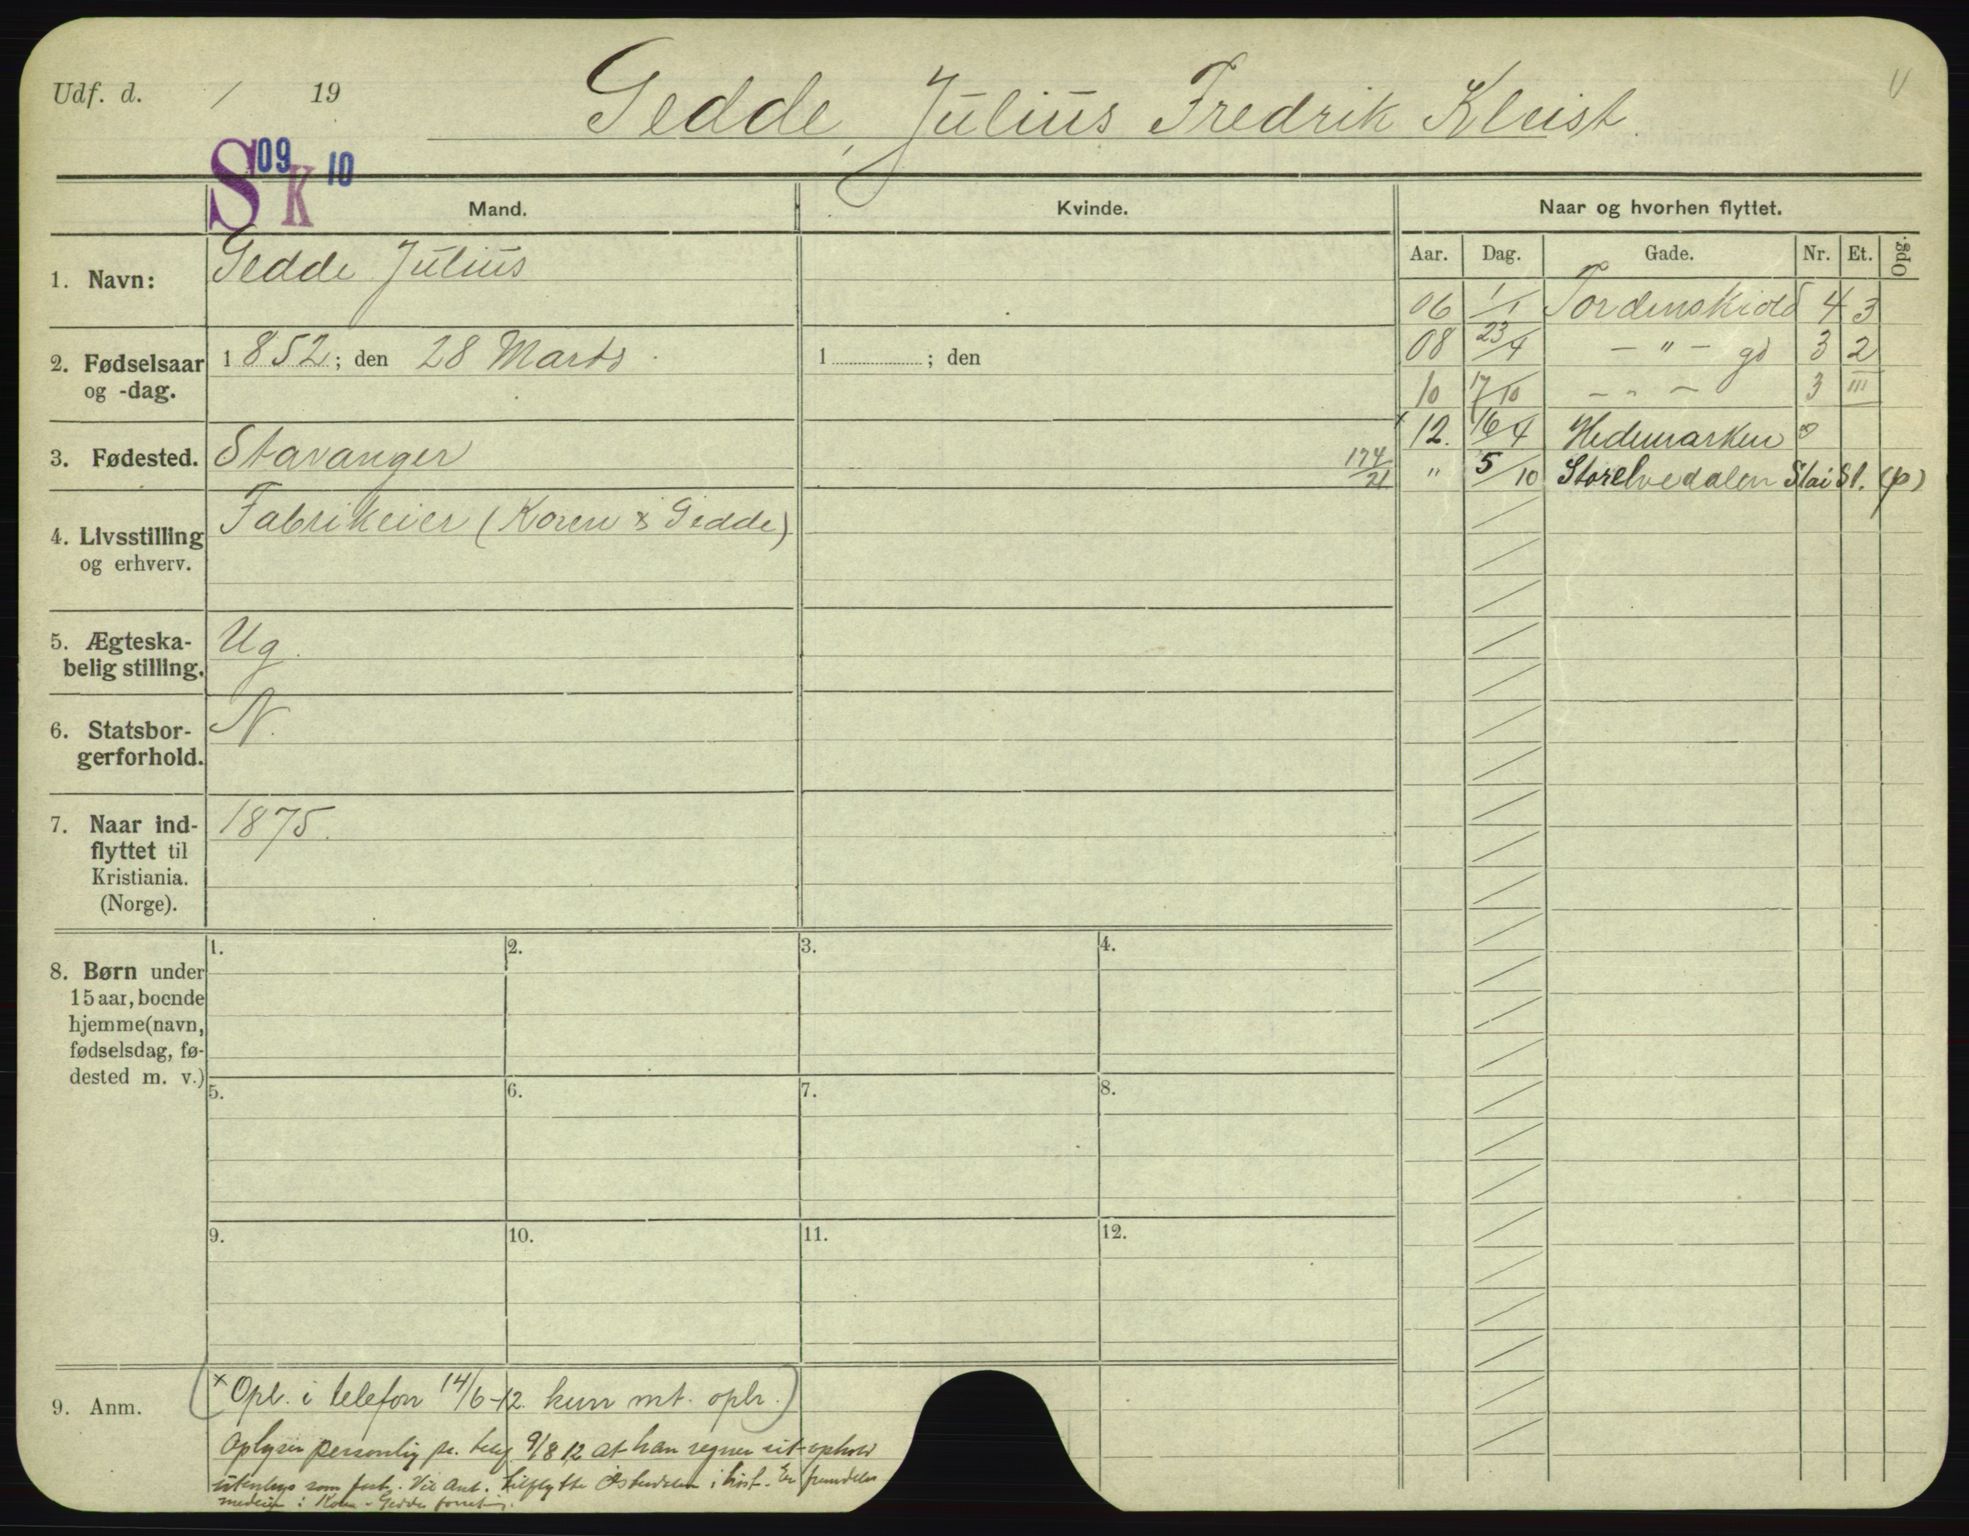 Udf. d. / 19
Gedde, Julius Fredrik Kleist.
S 09 K 10
Mand.
Kvinde.
Naar og hvorhen flyttet.
Aar. Dag. Gade. Nr. Et. Opg.
1. Navn: Gedde Julius
06 1/1 Tordenskiold 4 3
2. Fødselsaar og -dag. 1852; den 28 Marts.
1 ; den
08 23/4 — " — gd 3 2
10 17/10 — " — 3 III
x 12. 16/4 Hedemarken
3. Fødested. Stavanger
174/21
" 5/10 Storelvedalen Stai St. (p)
4. Livsstilling og erhverv. Fabrikeier (Koren & Gedde)
5. Ægteska-
belig stilling. Ug.
6. Statsbor-
gerforhold. N.
7. Naar ind-
flyttet til
Kristiania.
(Norge). 1875.
8. Børn under
15 aar, boende
hjemme (navn,
fødselsdag, fø-
dested m. v.)
1. 2. 3. 4.
5. 6. 7. 8.
9. 10. 11. 12.
9. Anm.
(x Opl. i telefon 14/6-12. kun mt. oplr.)
Oplyser personlig pr. telef 9/8 12 at han regner sit ophold
utenbys som fast. Vil ant. tilflytte Østerdalen i høst. Er fremdeles
medeier i Koren - Gedde forretn.